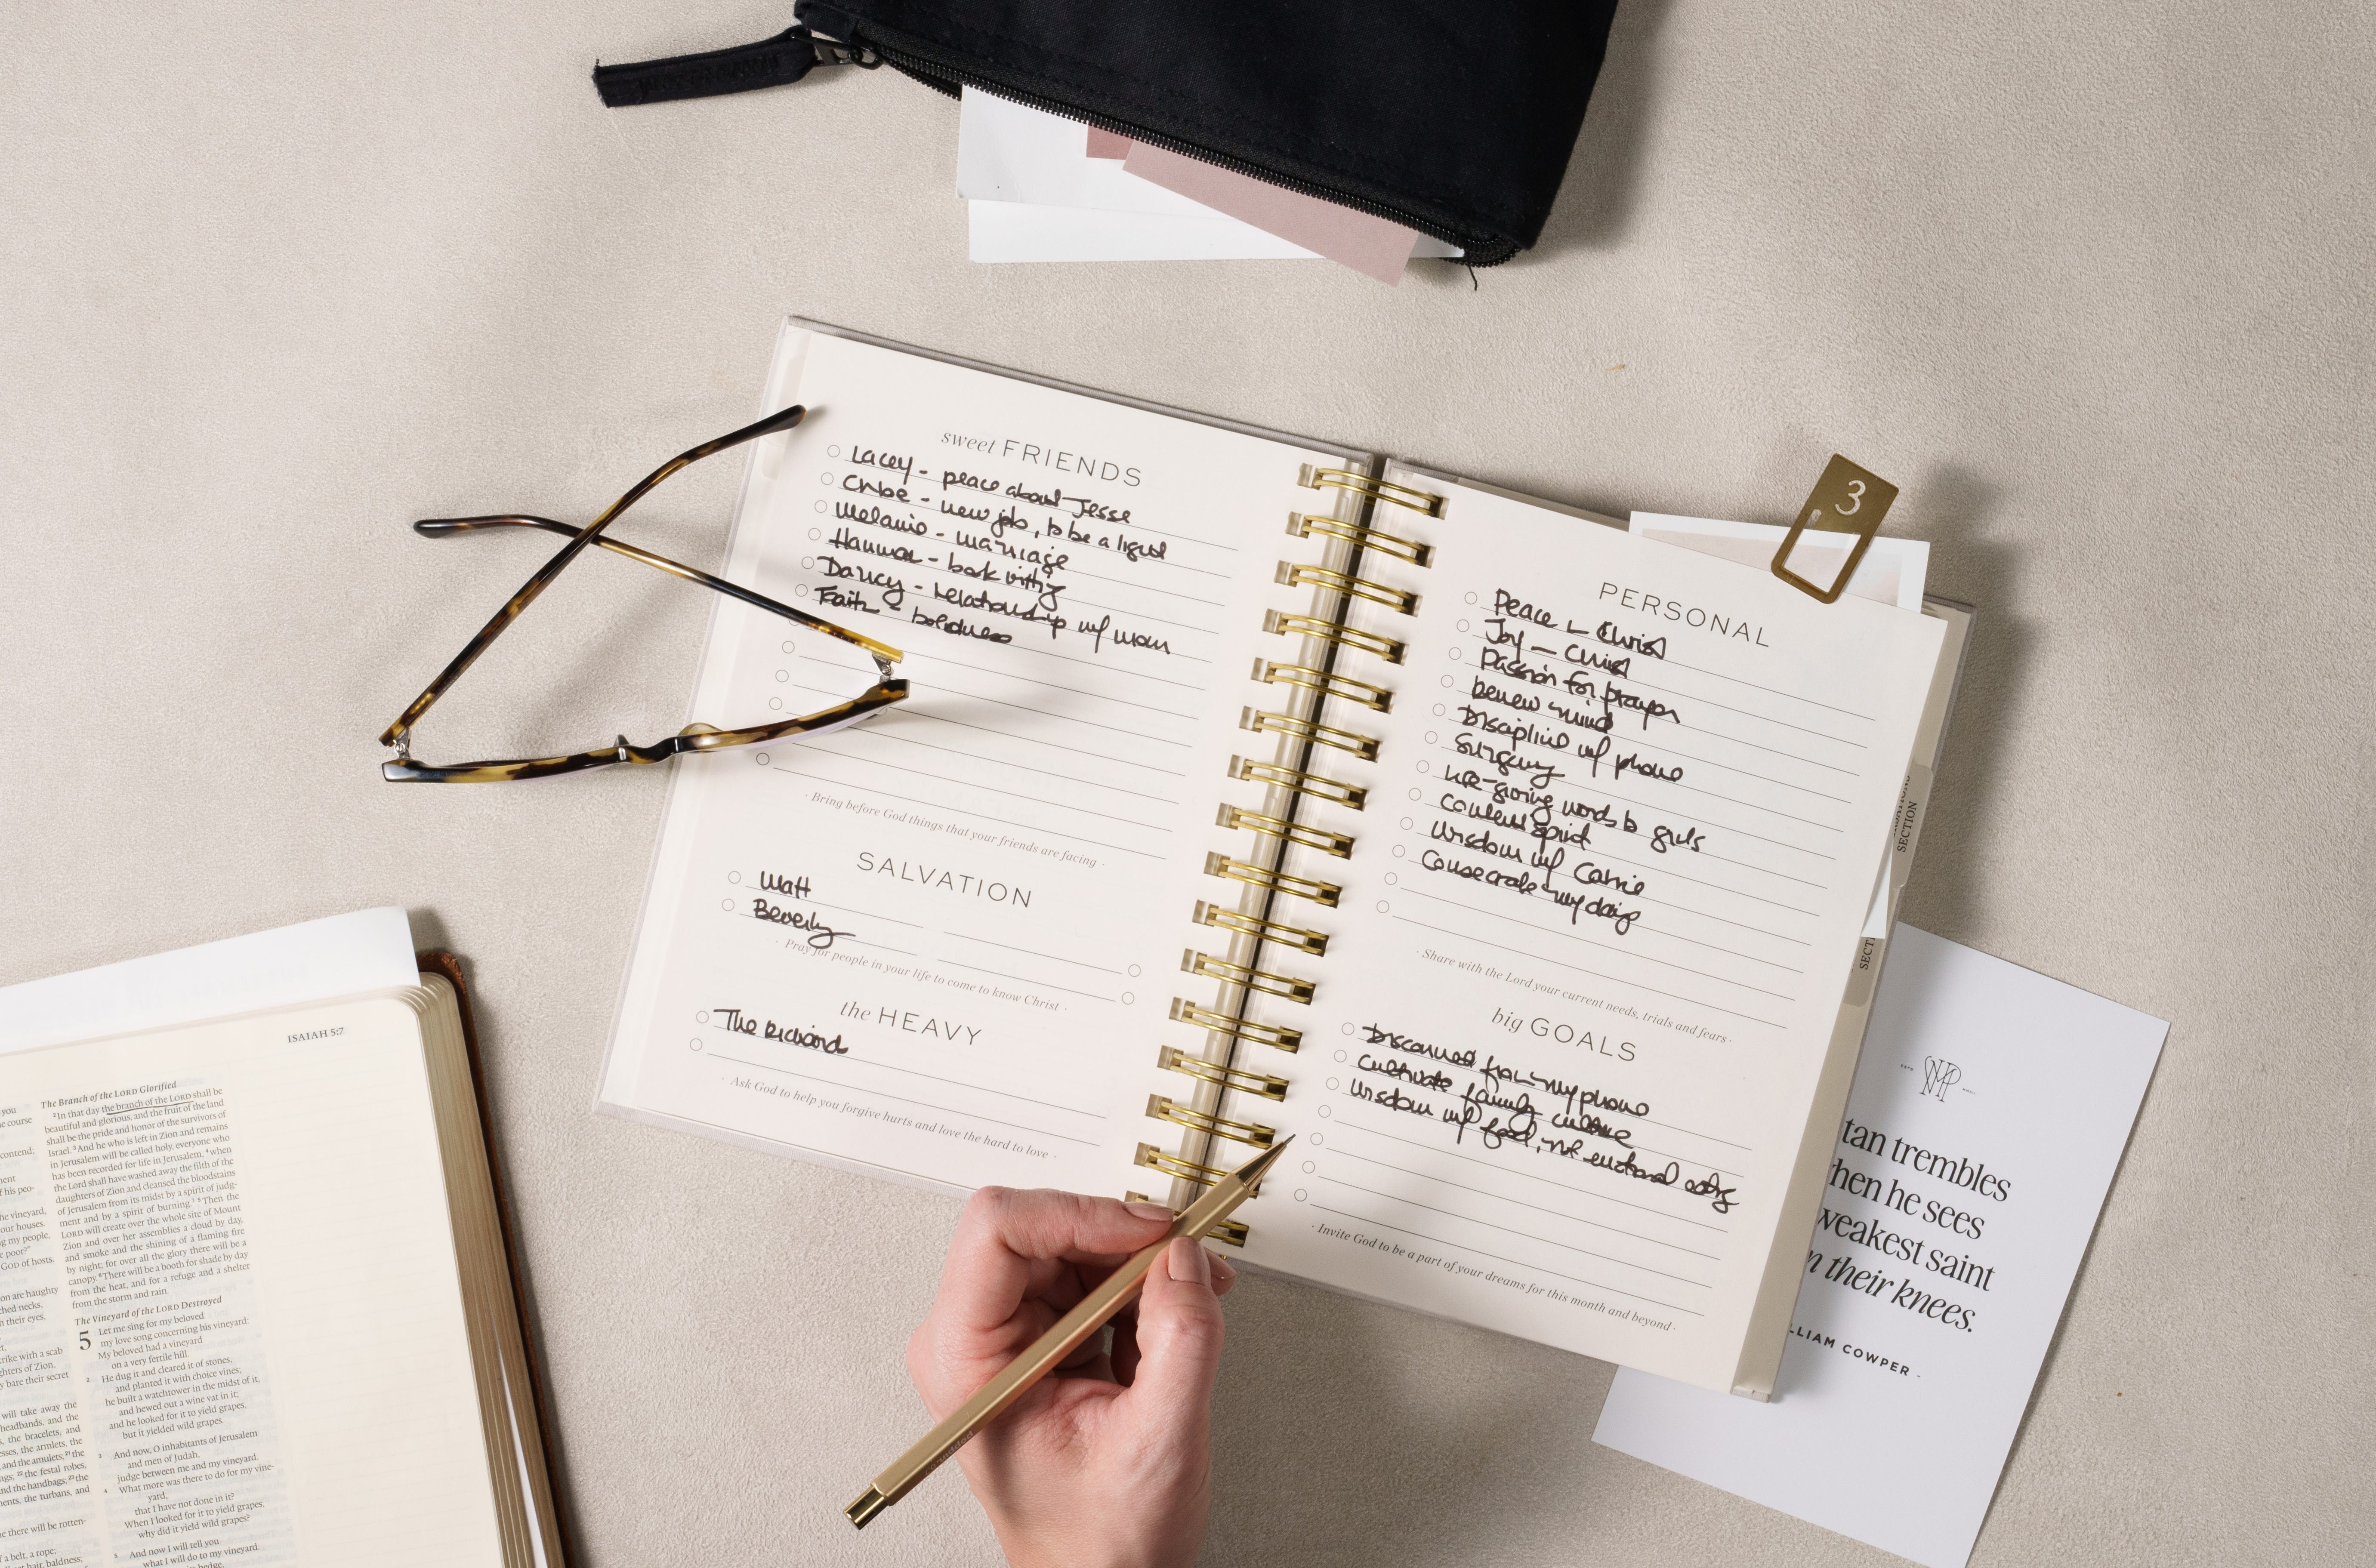 sweet FRIENDS
Lacey - peace about Jesse
Chloe - new job, to be a light
Melanie - marriage
Hannah - book writing
Darcy - relationship w/ mom
Faith - boldness
· Bring before God things that your friends are facing ·
SALVATION
Matt
Beverly
· Pray for people in your life to come to know Christ ·
the HEAVY
The Richard
· Ask God to help you forgive hurts and love the hard to love ·
3
PERSONAL
Peace in Christ
Joy in Christ
Passion for prayer
Renew mind
Discipline w/ phone
Surgery
Life-giving words to girls
Content spirit
Wisdom w/ Carrie
Consecrate my days
· Share with the Lord your current needs, trials and fears ·
big GOALS
Disconnect from my phone
Cultivate family culture
Wisdom w/ food, not emotional eating
· Invite God to be a part of your dreams for this month and beyond ·
SECTION
SECT
tan trembles
hen he sees
weakest saint
n their knees.
LLIAM COWPER -
ISAIAH 5:7
you
e course
contend;
ment
f his peo-
he vineyard,
our houses.
ng my people,
e poor?"
GOD of hosts.
on are haughty
ched necks,
n their eyes,
rike with a scab
ghters of Zion,
y bare their secret
will take away the
headbands, and the
, the bracelets, and
sses, the armlets, the
and the amulets; 22 the
ngs; 22 the festal robes,
nd the handbags; 23 the
ments, the turbans, and
d there will be rotten-
f a belt, a rope;
hair, baldness;
The Branch of the LORD Glorified
2 In that day the branch of the LORD shall be
beautiful and glorious, and the fruit of the land
shall be the pride and honor of the survivors of
Israel. 3 And he who is left in Zion and remains
in Jerusalem will be called holy, everyone who
has been recorded for life in Jerusalem, 4 when
the Lord shall have washed away the filth of the
daughters of Zion and cleansed the bloodstains
of Jerusalem from its midst by a spirit of judg-
ment and by a spirit of burning. 5 Then the
LORD will create over the whole site of Mount
Zion and over her assemblies a cloud by day,
and smoke and the shining of a flaming fire
by night; for over all the glory there will be a
canopy. 6 There will be a booth for shade by day
from the heat, and for a refuge and a shelter
from the storm and rain.
The Vineyard of the LORD Destroyed
5 Let me sing for my beloved
my love song concerning his vineyard:
My beloved had a vineyard
on a very fertile hill.
2 He dug it and cleared it of stones,
and planted it with choice vines;
he built a watchtower in the midst of it,
and hewed out a wine vat in it;
and he looked for it to yield grapes,
but it yielded wild grapes.
3 And now, O inhabitants of Jerusalem
and men of Judah,
judge between me and my vineyard.
4 What more was there to do for my vine-
yard,
that I have not done in it?
When I looked for it to yield grapes,
why did it yield wild grapes?
5 And now I will tell you
what I will do to my vineyard.
hedge,